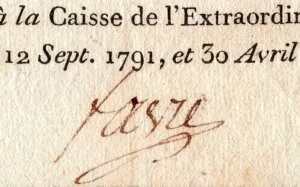 à la Caisse de l'Extraordin
12 Sept. 1791, et 30 Avril
favre